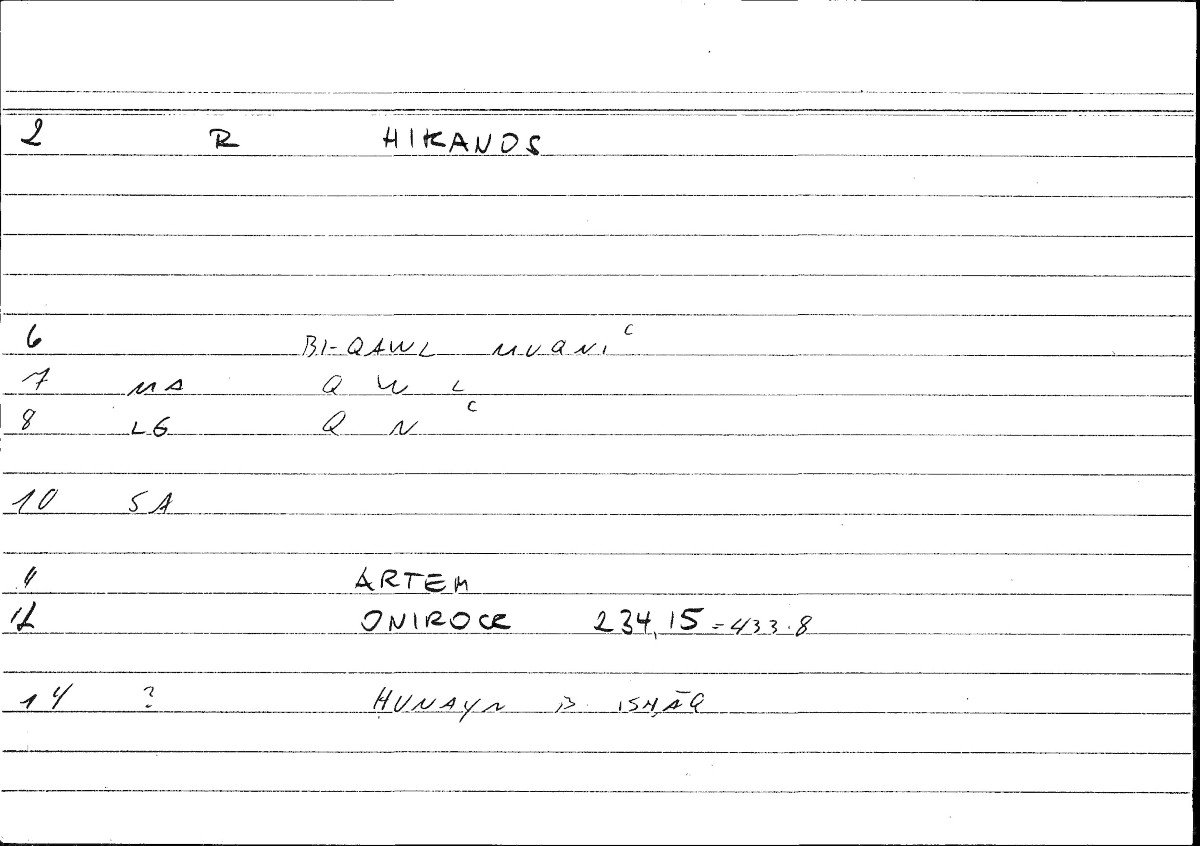 2 R HIKANOS
6 BI-QAWL MUQNIᶜ
7 MA Q W L
8 LG Q Nᶜ
10 SA
11 ARTEM
12 ONIROCR 234,15 = 433.8
14 ? ḤUNAYN B. ISḤĀQ